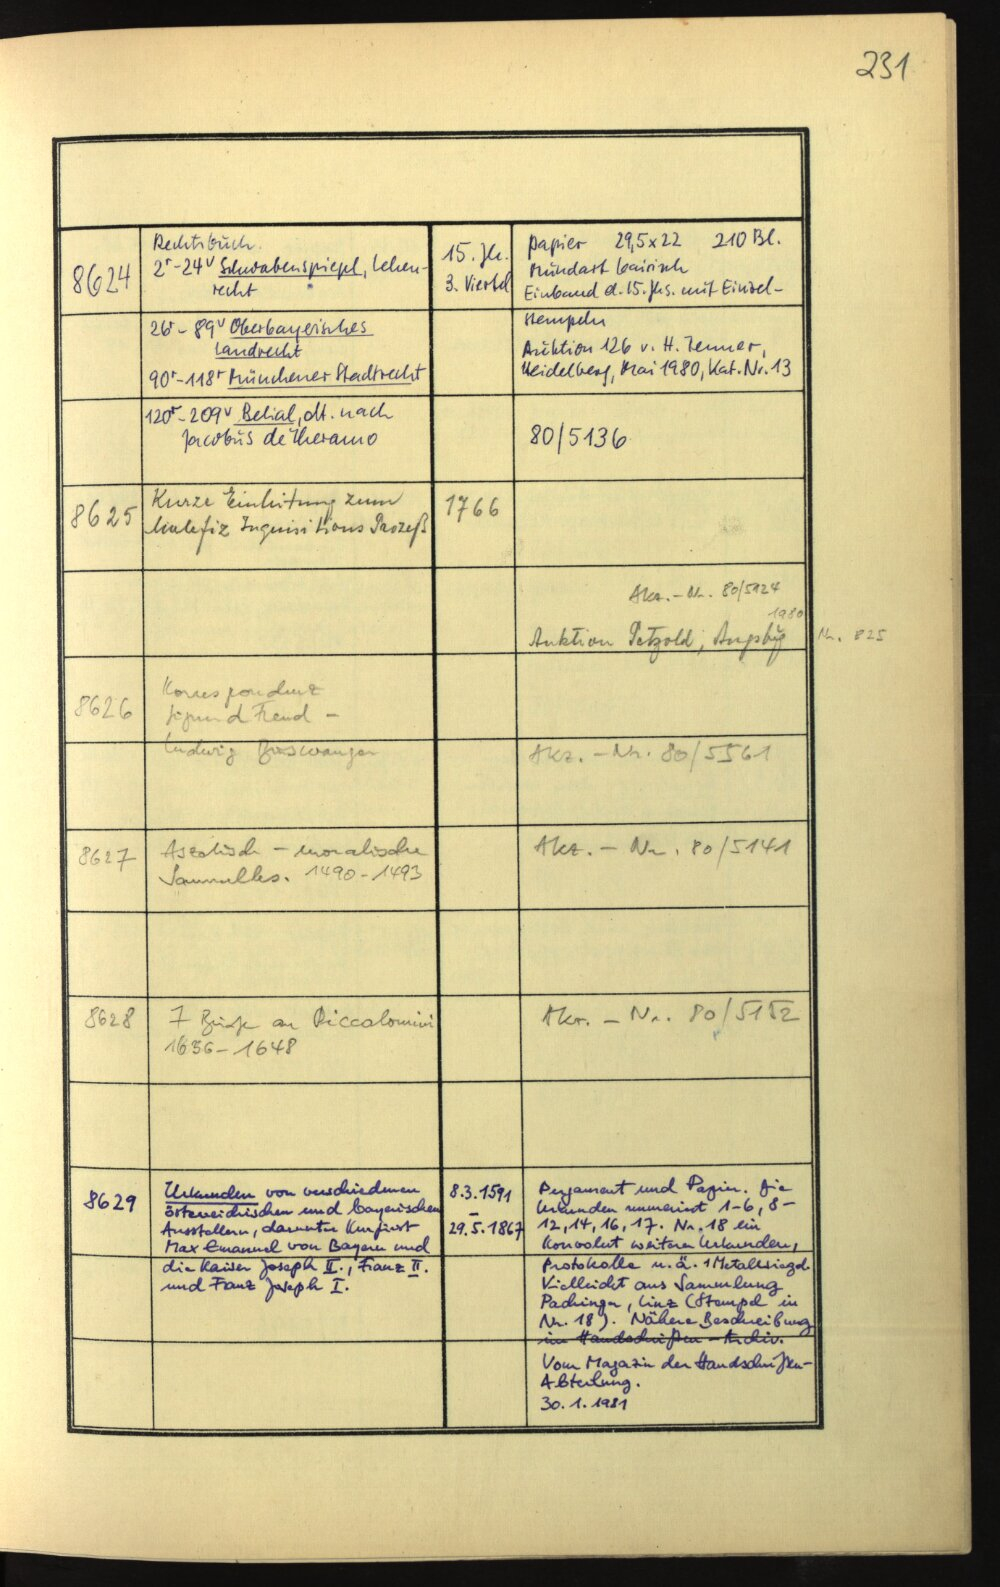 231
8624
Rechtsbuch.
2r-24v Schwabenspiegel, Lehen-
recht
26r-89v Oberbayerisches
Landrecht
90r-118r Münchener Stadtrecht
120r-209v Belial, dt. nach
Jacobus de Theramo
15. Jh.
3. Viertel
Papier 29,5x22 210 Bl.
Mundart bairisch
Einband d. 15. Jhs. mit Einzel-
stempeln
Auktion 126 v. H. Tenner,
Heidelberg, Mai 1980, Kat. Nr. 13
80/5136
8625
Kurze Einleitung zum
Malefiz Inquisitions Prozeß
1766
Akz.-Nr. 80/5124
1980
Auktion Petzold, Augsbg
Nr. 825
8626
Korrespondenz
Sigmund Freud -
Ludwig Binswanger
Akz.-Nr. 80/5561
8627
Aszetisch - moralische
Sammelhs. 1490-1493
Akz.-Nr. 80/5141
8628
7 Briefe an Piccolomini
1636-1648
Akz.-Nr. 80/5152
8629
Urkunden von verschiedenen
österreichischen und bayerischen
Ausstellern, darunter Kurfürst
Max Emanuel von Bayern und
die Kaiser Joseph II., Franz II.
und Franz Joseph I.
8.3.1591
-
29.5.1867
Pergament und Papier. Die
Urkunden numeriert 1-6, 8-
12, 14, 16, 17. Nr. 18 ein
Konvolut weiterer Urkunden,
Protokolle u.ä. 1 Metallsiegel.
Vielleicht aus Sammlung
Pachinger, Linz (Stempel in
Nr. 18). Nähere Beschreibung
im Handschriften-Archiv.
Vom Magazin der Handschriften-
Abteilung.
30.1.1981